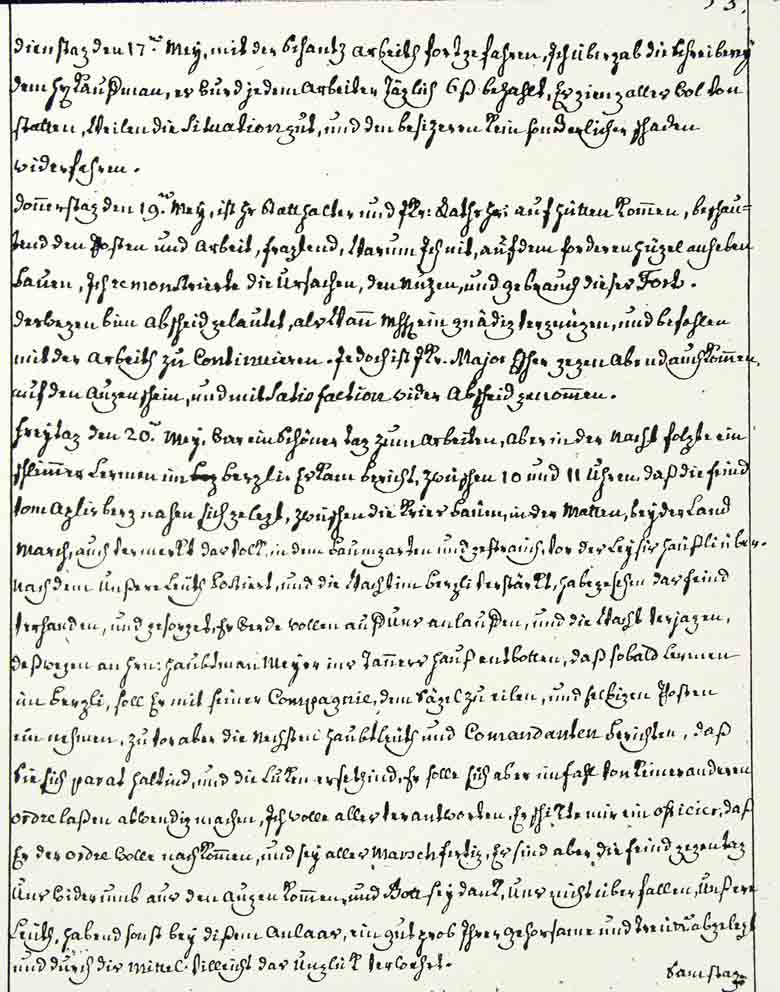 53.
dienstag den 17.ᵗ Mey, mit der schantz arbeith fortgefahren, Ich übergab die schreiberey
dem Hr Kaufman, es wurd jedem arbeiter täglich 6 ß bezahlt, Es gieng alles wol von
statten, weilen die Situation gut, und den besizeren kein sonderlicher schaden
widerfahren.
donnerstag den 19.ᵗ Mey, ist Hr Statthalter und Jkr: Rathshr: auf Hütten kommen, beschau-
tend den Posten und arbeit, fragtend, warum Ich nit, auf dem forderen hügel anheben
bauen, Ich remonstrierte die ursachen, den nuzen, und gebrauch dieser Fort.
deswegen bim abscheid gelautet, als wann mhh ein gnädig vergnügen, und befohlen
mit der arbeith zu Continuieren. Jedoch ist Jkr. Major Escher gegen abend auch kommen,
auf den augenschein, und mit Satisfaction wider abscheid genommen.
freytag den 20.ᵗ Mey, war ein schöner tag zum arbeiten, aber in der nacht folgte ein
schlimmer Lermen im bergli. Es kam bericht, zwüschen 10 und 11 Uhren, daß die feind
vom nahen sich gelegt, zwüschen die kries bäum, in der Matten, bey der Land
March, auch vermerkt das volk, in dem baumgarten und gestrauch, vor der häußli über.
nach dem unßere Leüth Postiert, und die wacht im bergli verstärkt, hab gesehen das feind
verhanden, und gesorget, Er werde wollen auf uns anlauffen, und die wacht verjagen,
deßwegen an Hrn: haubtman Meyer ins Tanners hauß entbotten, daß sobald Lermen
im bergli, soll Er mit seiner Compagnie, dem zu eilen, und selbigen Posten
ein nehmen, zuvor aber die nechsten haubtleüth und Comandanten berichten, daß
sie sich parat haltind, und die Luken ersetzind, Er solle sich aber im fahl von keiner anderen
ordre laßen abwendig machen, Ich wolle alles verantworten, Er schikte mir ein officier, daß
Er der ordre wolle nachkommen, und sey alles Marschfertig, Es sind aber die feind gegen tag
uns widerumb aus den augen kommen, und Gott sey dank, uns nicht überfallen, unßere
Leüth, habend sonst bey dißem anlaas, ein gut prob Ihrer gehorsame und treü abgelegt
und durch dis Mittel villeicht das unglük verwehrt.
Samstag